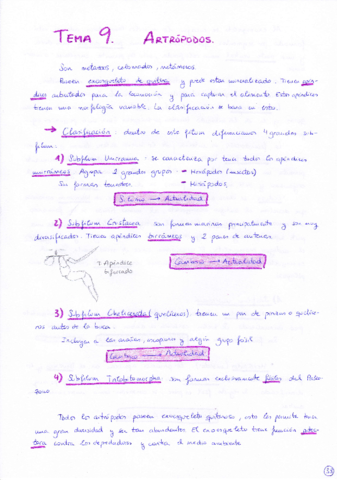 TEMA 9. ARTRÓPODOS.
Son metazoos, celomados, metámeros.
Poseen exoesqueleto de quitina y puede estar mineralizado. Tienen apén-
dices adaptados para la locomoción y para capturar el alimento. Estos apéndices
tienen una morfología variable. La clasificación se basa en estos.
→ Clasificación: dentro de este filum diferenciamos 4 grandes sub-
filum.
1) Subfilum Unirramia: se caracteriza por tener todos los apéndices
unirrámeos. Agrupa 2 grandes grupos: - Hexápodos (insectos)
- Miriápodos.
Silúrico → Actualidad
2) Subfilum Crustacea: son formas marinas principalmente y son muy
diversificados. Tienen apéndices birrámeos y 2 pares de antenas.
Apéndice
bifurcado
Cámbrico → Actualidad
3) Subfilum Chelicerata (quelíceros): tienen un par de
antes de la boca.
Incluyen a las arañas, escorpiones y algún grupo fósil.
Cámbrico → Actualidad
4) Subfilum Trilobitomorpha: son formas exclusivamente fósiles del Paleo-
zoico.
Todos los artrópodos poseen exoesqueleto quitinoso, esto les permite tener
una gran diversidad y ser tan abundantes. El exoesqueleto tiene función
contra los depredadores y contra el medio ambiente.